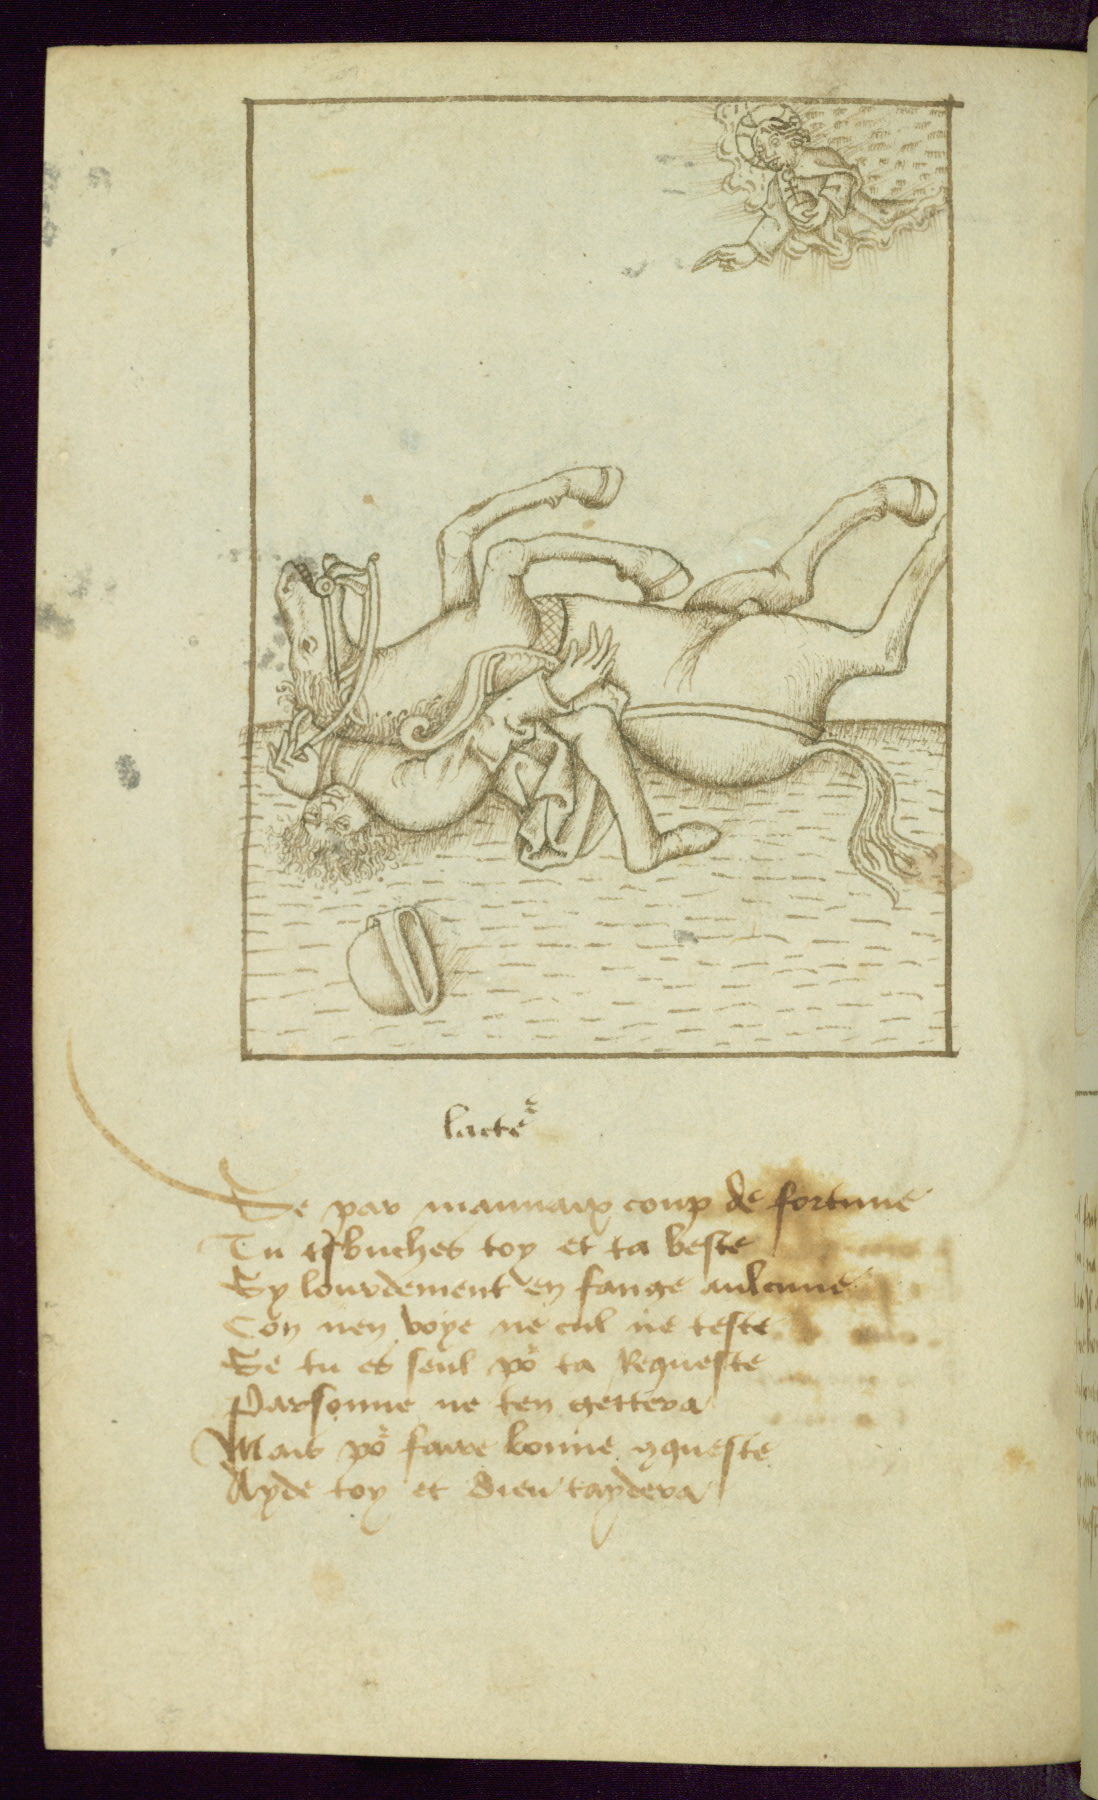 lacte
Se par mauuaix coup de fortune
Tu tsbuches toy et ta beste
Sy lourdement en fange aulcune
Con nen voye ne cul ne teste
Se tu es seul po ta Requeste
Parsonne ne ten gettera
Mais po faire bonne 9queste
Ayde toy et dieu taydera